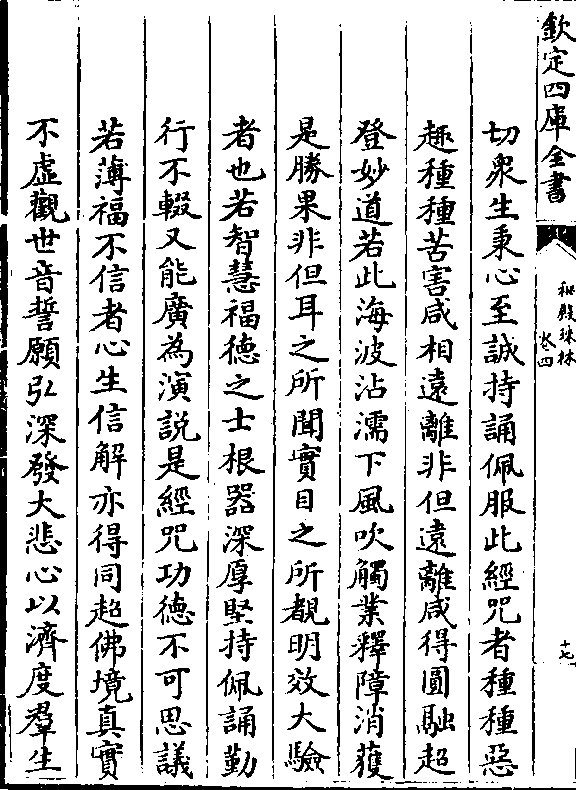 欽定四庫全書
秘殿珠林
卷四
十七
切衆生秉心至誠持誦佩服此經咒者種種惡
趣種種苦害咸相遠離非但遠離咸得圓融超
登妙道若此海波沾濡下風吹觸業釋障消獲
是勝果非但耳之所聞實目之所覩明效大驗
者也若智慧福德之士根器深厚堅持佩誦勤
行不輟又能廣為演說是經咒功德不可思議
若薄福不信者心生信解亦得同超佛境真實
不虛觀世音誓願弘深發大悲心以濟度羣生